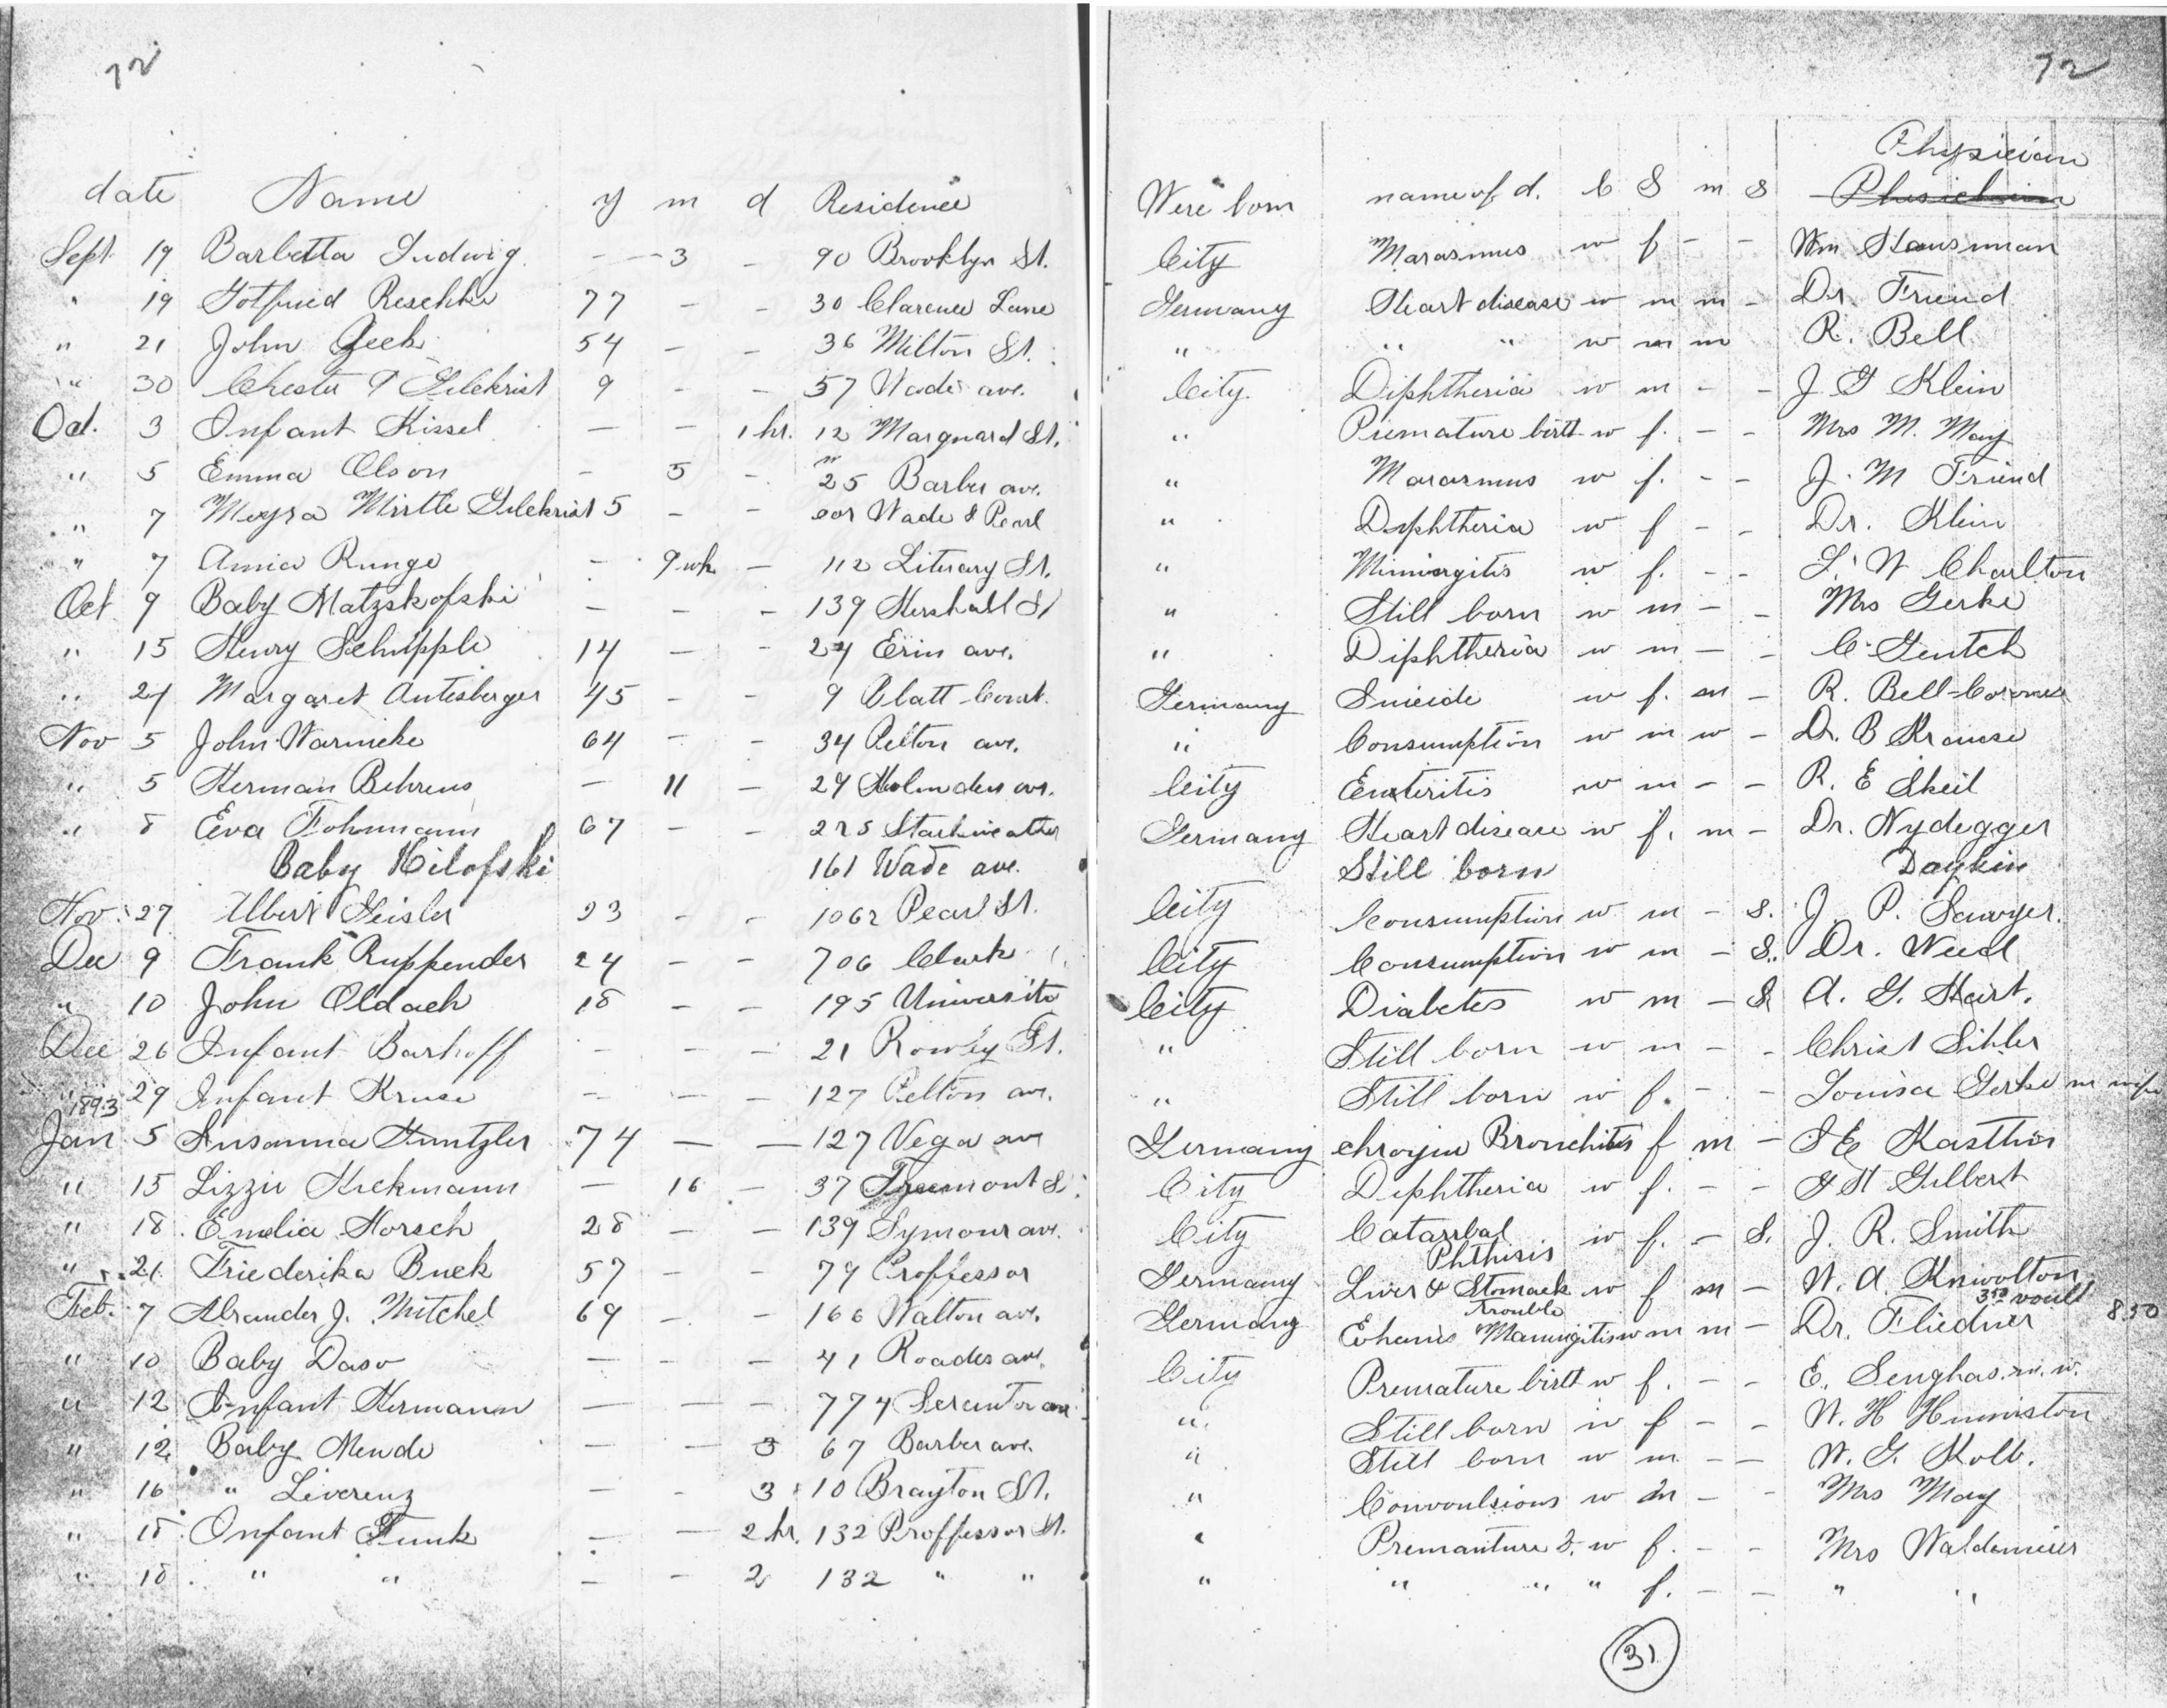 72
72
Physician
date Name y m d Residence Were born name of d. C S m S Phisichian
Sept. 19 Barbetta Ludwig - - 3 - 90 Brooklyn St. City Marasmus w f - - Wm Hausmman
" 19 Gotfried Reschke 77 - - 30 Clarence Lane Germany Heart disease w m m - Dr. Friend
" 21 John Geek 54 - - 36 Milton St. " " " w m m R. Bell
" 30 Chester Gilchrist 9 - - 57 Wade ave. City. Diphtheria w m - - J G Klein
Oct. 3 Infant Kissel - - 1 hr. 12 Marguard St. " Premature birth w f. - - Mrs M. May
" 5 Emma Olson - 5 - 25 Barber ave. " Marasmus w f. - - J. M Friend
" 7 Meyra Mirtle Gilchrist 5 - - cor Wade & Pearl " Diphtheria w f - - Dr. Klein
" 7 Annie Runge - 9 wk - 112 Literary St. " Miningitis w f. - - L. W Charlton
Oct 9 Baby Matzskofski - - - 139 Hershall St " Still born w m - - Mrs Gerke
" 15 Henry Schipple 14 - - 24 Erin ave. " Diphtheria w m - - C. Gentch
" 24 Margaret Antesberger 45 - - 9 Platt Court. Germany Suicide w f. m - R. Bell-Coroner
Nov 5 John Warnieke 64 - - 34 Pelton ave. " Consumption w m w - Dr. B Krause
" 5 Herman Behrens - 11 - 29 Holmden ave. City Enteritis w m - - R. E Skeil
" 8 Eva Fohnmann 67 - - 225 Starkweather Germany Heart disease w f. m - Dr. Nydegger
Baby Hilofski 161 Wade ave. Still born Daykin
Nov. 27 Albert Geisler 23 - - 1062 Pearl St. City Consumption w m - S. J. P. Sawyer.
Dec 9 Frank Ruppender 24 - - 706 Clark City Consumption w m - S. Dr. Weed
" 10 John Oldach 18 - - 195 Universite City Diabetes w m - S A. G. Hart.
Dec 26 Infant Barhoff - - - 21 Rowley St. " Still born w m - - Christ Sihler
" 29 Infant Kruse - - - 127 Pelton ave. " Still born w f. - - Louisa Gerke m wife
1893
Jan 5 Susanna Huntzler 74 - - 127 Vega ave Germany chroyin Bronchitis f m - Kasthin
" 15 Lizzie Hickmann - 16 - 37 Freemont St. City Diphtheria w f. - - G H Gilbert
" 18. Emelia Horsch 28 - - 139 Symour ave. City Catarrbal w f. - S. J. R. Smith
Phthisis
" 21 Friederika Buek 57 - - 79 Proffessor Germany Liver & Stomack w f m - W. A. Knwolton
Trouble 3 50 voult
Feb. 7 Alxander J. Mitchel 69 - - 166 Walton ave. Germany Exhanis Maningitis w m m - Dr. Fliedner 8 50
" 10 Baby Daso - - - 41 Roades ave. City Premature birth w f. - - E. Senghas. m. w.
" 12 Infant Hermann - - - 774 Scrantor ave " Still born w f - - W. H Huminston
" 12 Baby Mende - - 3 67 Barber ave. " Still born w m - - W. G. Kolb.
" 16 " Liverenz - - 3 10 Brayton St. " Convoulsions w m - - Mrs May
" 18. Infant Funk - - 2 hr. 132 Proffessor St. " Premanture B. w f. - - Mrs Waldemeier
" 18 " " - - 2 132 " " " " " " f. - - " "
31